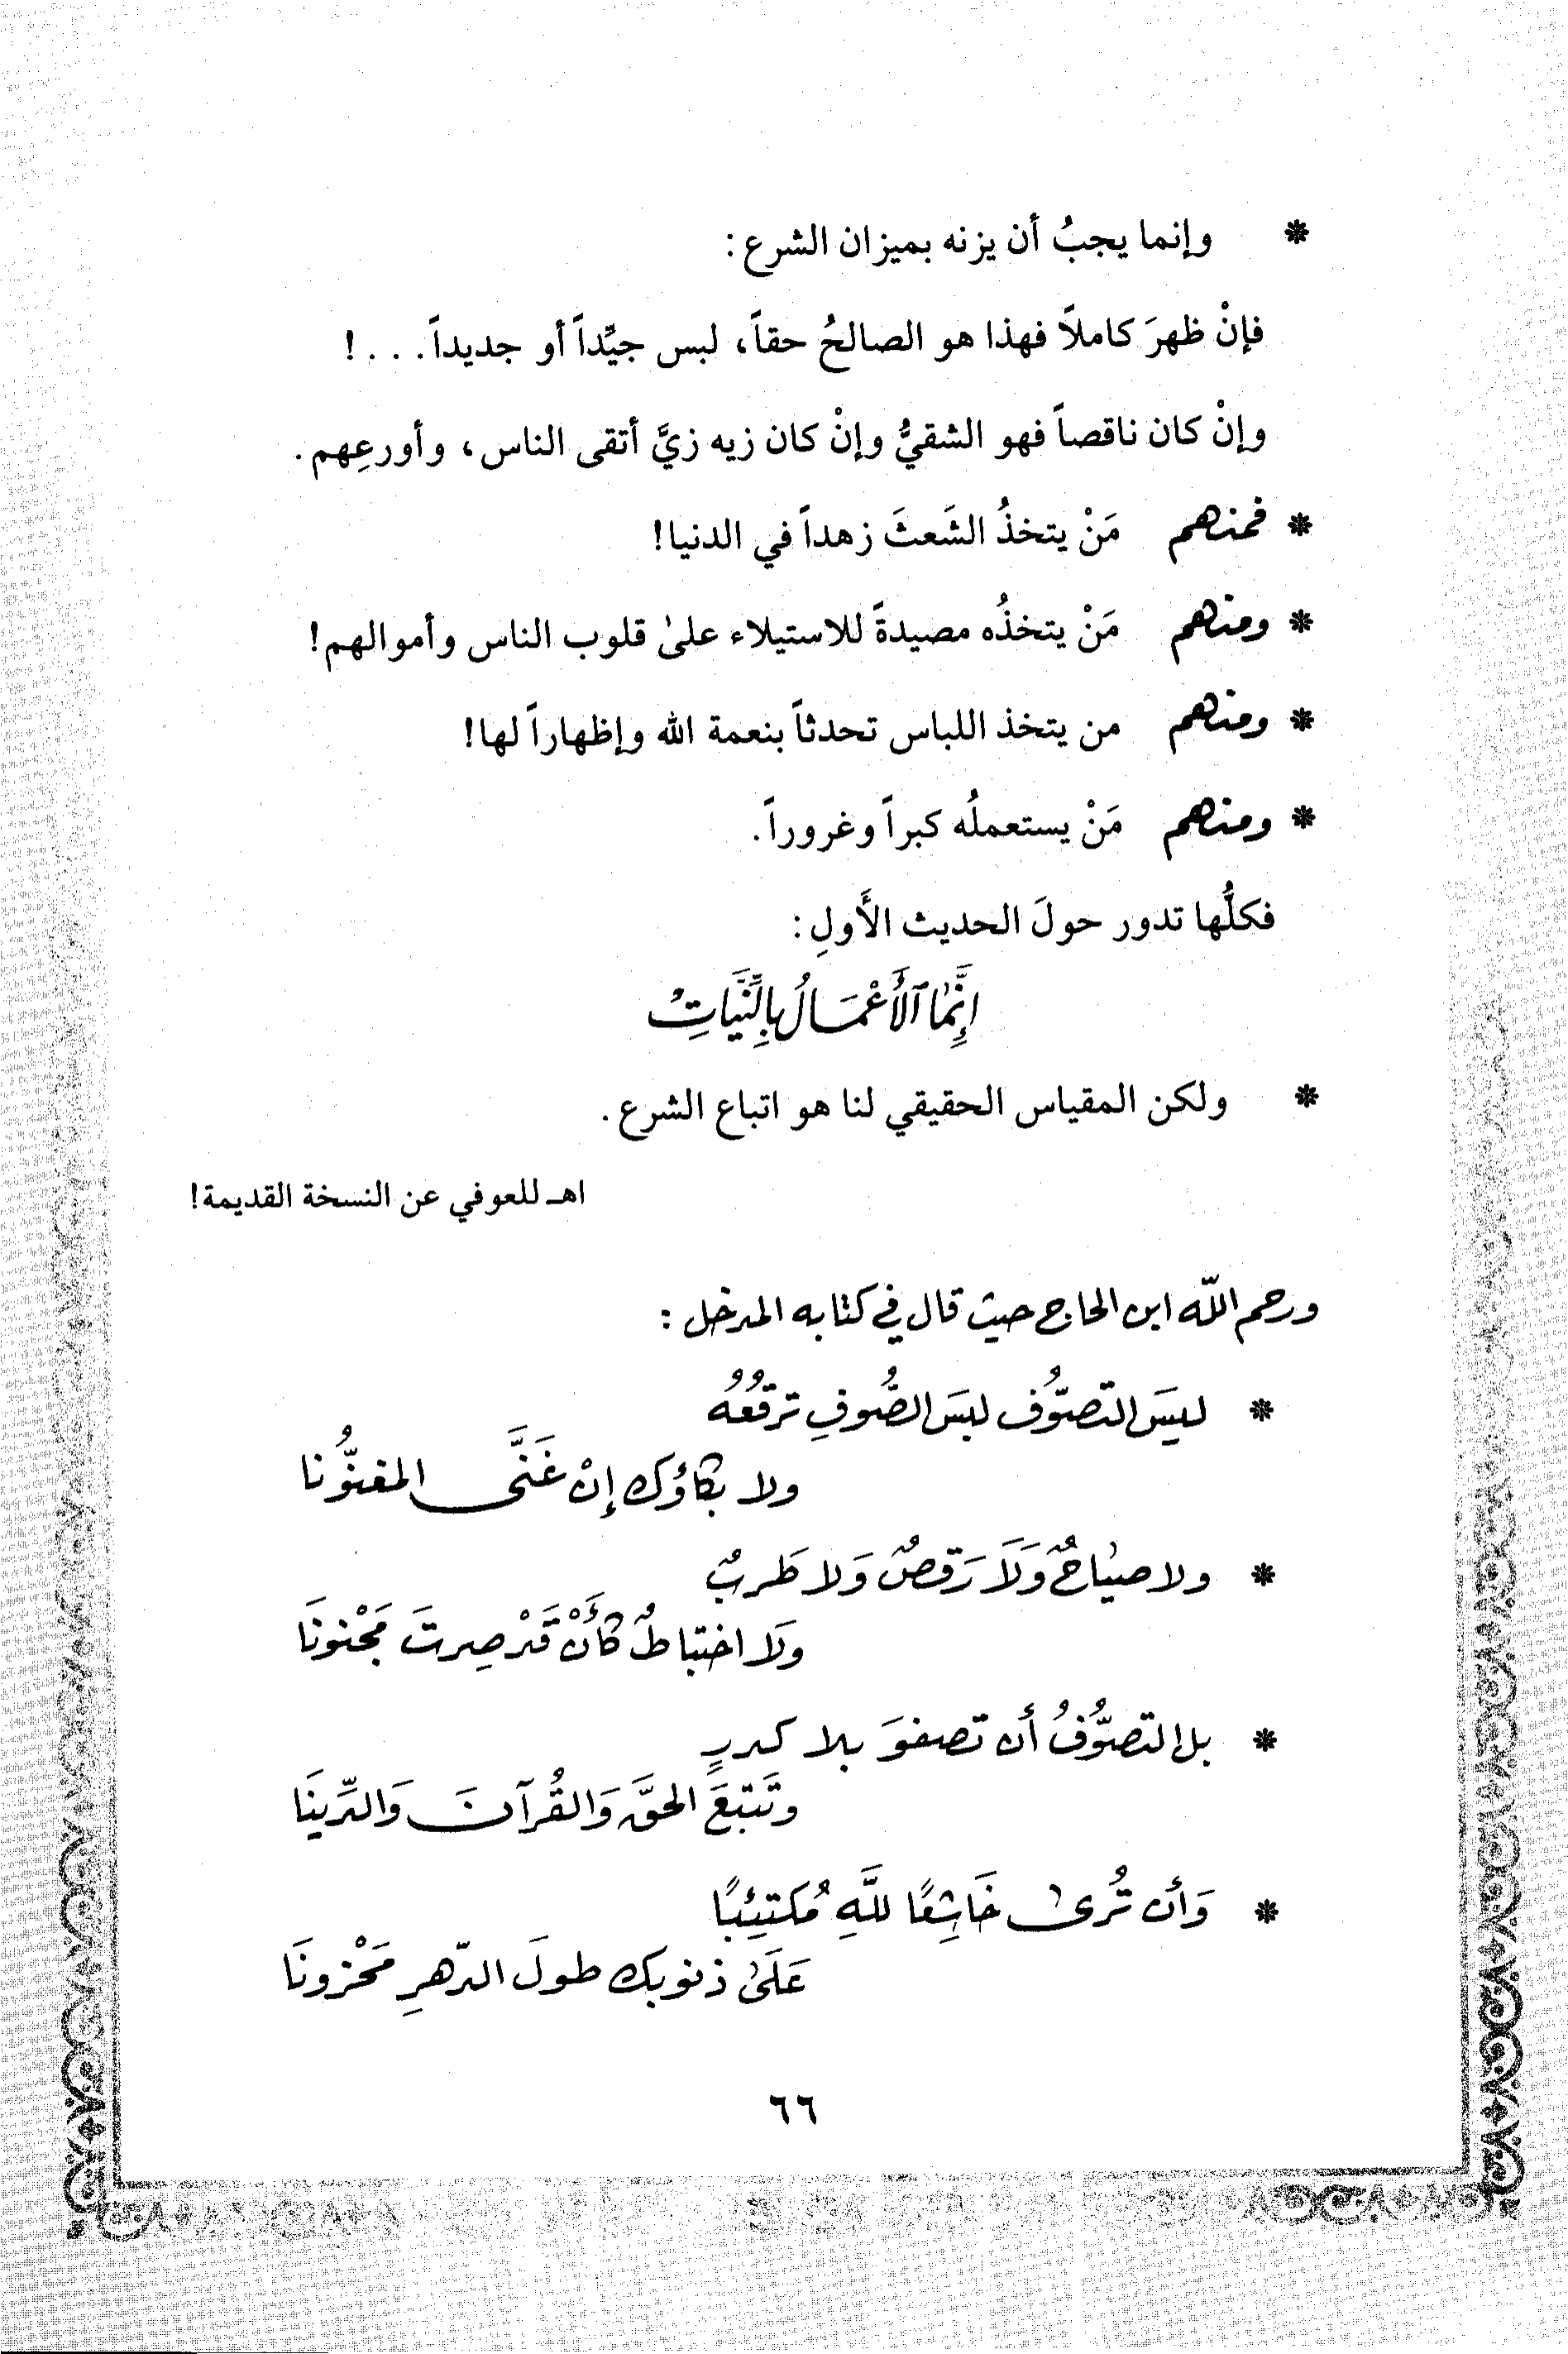 * وإنما يجبُ أن يزنه بميزان الشرع:
فإنْ ظهرَ كاملاً فهذا هو الصالحُ حقاً، لبس جيِّداً أو جديداً. . . !
وإنْ كان ناقصاً فهو الشقيُّ وإنْ كان زيه زيَّ أتقى الناس، وأورعِهم.
* فمنهم مَنْ يتخذُ الشَعثَ زهداً في الدنيا!
* ومنهم مَنْ يتخذُه مصيدةً للاستيلاء علىٰ قلوب الناس وأموالهم!
* ومنهم من يتخذ اللباس تحدثاً بنعمة الله وإظهاراً لها!
* ومنهم مَنْ يستعملُه كبراً وغروراً.
فكلُّها تدور حولَ الحديث الأَولِ:
إِنَّمَا ٱلأَعْمَالُ بِالنِّيَّاتِ
* ولكن المقياس الحقيقي لنا هو اتباع الشرع.
اهـ للعوفي عن النسخة القديمة!
ورحم اللّه ابن الحاج حيث قال في كتابه المدخل:
* ليسَ التصوُّف لبسَ الصُّوفِ ترقعُهُ
ولا بكاؤك إنْ غَنَّى المغنُّونا
* ولا صيَاحٌ وَلَا رَقصٌ وَلا طَربٌ
ولَا اختباطٌ كأَنْ قَدْ صِرتَ مَجْنونَا
* بل التصوُّفُ أن تصفوَ بلا كدرٍ
وتَتبعَ الحقَّ وَالقُرآنَ وَالدِّينَا
* وَأن تُرىٰ خَاشِعًا للَّهِ مُكتئِبًا
عَلَىٰ ذنوبك طولَ الدّهرِ مَحْزونَا
٦٦